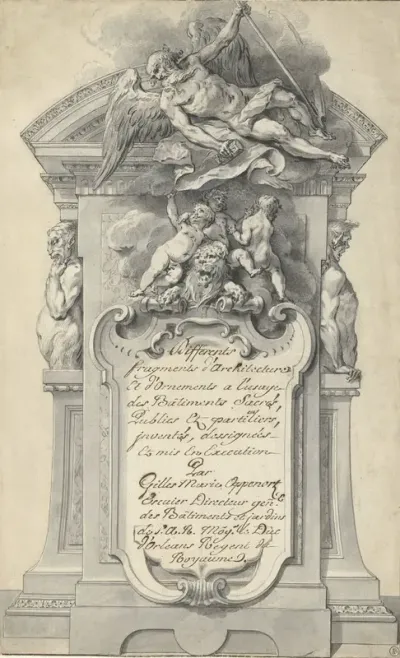 Differents
fragments d'Architecture
Et d'Ornements a l'usage
des Bâtiments Sacrés,
Publics Et partiliers,
inventés, dessignées
Et mis En Execution
Par
Gilles Marie Oppenort
Ecuier Directeur gen.
des Bâtiments & jardins
de S. A. R. Mög.r Duc
d'Orleans Regent du
Royaume.